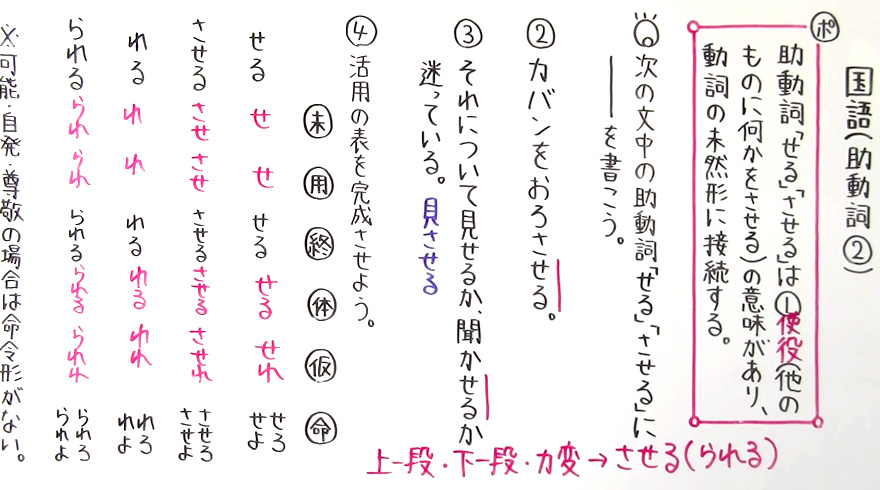 国語(助動詞②)
ポ
助動詞「せる」「させる」は①使役(他の
ものに何かをさせる)の意味があり、
動詞の未然形に接続する。
次の文中の助動詞「せる」「させる」に
――を書こう。
②カバンをおろさせる。
③それについて見せるか、聞かせるか
迷っている。見させる
上一段・下一段・カ変→させる(られる)
④活用の表を完成させよう。
未 用 終 体 仮 命
せる せ せ せる せる せれ せろ せよ
させる させ させ させる させる させれ させろ させよ
れる れ れ れる れる れれ れろ れよ
られる られ られ られる られる られれ られろ られよ
※可能・自発・尊敬の場合は命令形がない。